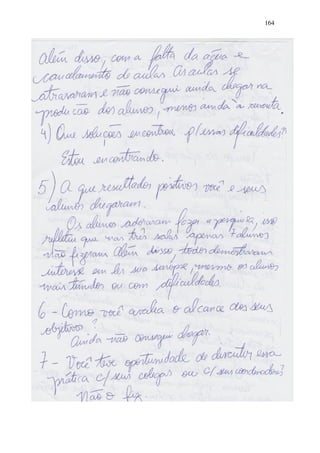 164
Além disso, com a falta da água e
cancelamento de aulas as aulas se
atrasaram e não consegui ainda chegar na
produção dos alunos, menos ainda à
4) Que soluções encontrou p/ essas dificuldades?
Estou encontrando.
5) A que resultados positivos você e seus
alunos chegaram.
Os alunos adoraram fazer a pesquisa, isso
refletiu que nas três salas apenas 7 alunos
não fizeram. Além disso todos demonstraram
interesse em ler sua sinopse, mesmo os alunos
mais tímidos ou com dificuldades.
6 - Como você avalia o alcance dos seus
objetivos?
Ainda não consegui chegar.
7 - Você teve oportunidade de discutir essa
prática c/ seus colegas ou c/ seus coordenadores?
Não o fiz.